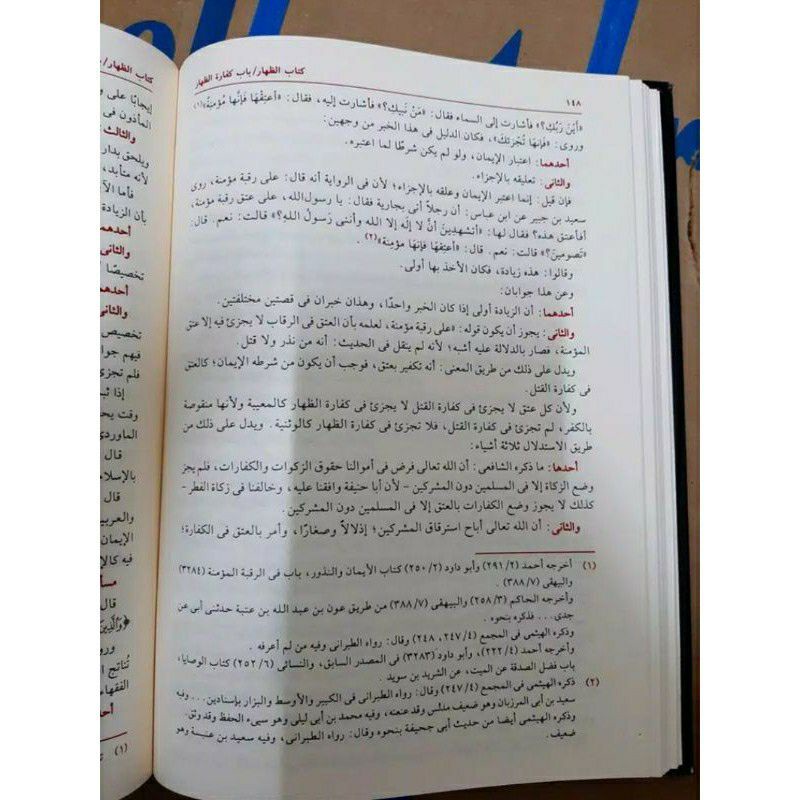 ١٤٨
كتاب الظهار/ باب كفارة الظهار
«أَيْنَ رَبُّكِ؟» فأشارت إلى السماء فقال: «مَنْ نَبِيكِ؟» فأشارت إليه، فقال: «أعتِقْهَا فَإِنَّها مُؤْمِنَةٌ»(١)
وروى: «فَإنهَا تُجْزِئكَ»، فكان الدليل فى هذا الخبر من وجهين:
أحدهما: اعتبار الإيمان، ولو لم يكن شرطًا لما اعتبره.
والثانى: تعليقه بالإجزاء.
فإن قيل: إنما اعتبر الإيمان وعلقه بالإجزاء؛ لأن فى الرواية أنه قال: على رقبة مؤمنة، روى
سعيد بن جبير عن ابن عباس: أن رجلاً أتى بجارية فقال: يا رسول الله، على عتق رقبة مؤمنة،
أفأعتق هذه؟ فقال لها: «أتشهدِينَ أنْ لا إلَه إلا الله وأننى رَسولُ اللهِ؟» قالت: نعم. قال:
«تَصومِينَ؟» قالت: نعم. قال: «أعتِقْها فإنها مؤمنة»(٢).
وقالوا: هذه زيادة، فكان الأخذ بها أولى.
وعن هذا جوابان:
أحدهما: أن الزيادة أولى إذا كان الخبر واحدًا، وهذان خبران فى قصتين مختلفتين.
والثانى: يجوز أن يكون قوله: «على رقبة مؤمنة، لعلمه بأن العتق فى الرقاب لا يجزئ فيه إلا عتق
المؤمنة، فصار بالدلالة عليه أشبه؛ لأنه لم ينقل فى الحديث: أنه من نذر ولا قتل.
ويدل على ذلك من طريق المعنى: أنه تكفير بعتق، فوجب أن يكون من شرطه الإيمان؛ كالعتق
فى كفارة القتل.
ولأن كل عتق لا يجزئ فى كفارة القتل لا يجزئ فى كفارة الظهار كالمعيبة ولأنها منقوصة
بالكفر، لم تجزئ فى كفارة القتل، فلا تجزئ فى كفارة الظهار كالوثنية. ويدل على ذلك من
طريق الاستدلال ثلاثة أشياء:
أحدها: ما ذكره الشافعى: أن الله تعالى فرض فى أموالنا حقوق الزكوات والكفارات، فلم يجز
وضع الزكاة إلا فى المسلمين دون المشركين - لأن أبا حنيفة وافقنا عليه، وخالفنا فى زكاة الفطر -
كذلك لا يجوز وضع الكفارات بالعتق إلا فى المسلمين دون المشركين.
والثانى: أن الله تعالى أباح استرقاق المشركين؛ إذلالاً وصغارًا، وأمر بالعتق فى الكفارة؛
(١) أخرجه أحمد (٢٩١/٢) وأبو داود (٢٥٠/٢) كتاب الأيمان والنذور، باب فى الرقبة المؤمنة (٣٢٨٤)
والبيهقى (٣٨٨/٧).
وأخرجه الحاكم (٢٥٨/٣) والبيهقى (٣٨٨/٧) من طريق عون بن عبد الله بن عتبة حدثنى أبى عن
جدى... فذكره بنحوه.
وذكره الهيثمى فى المجمع (٢٤٧/٤، ٢٤٨) وقال: رواه الطبرانى وفيه من لم أعرفه.
وأخرجه أحمد (٢٢٢/٤)، وأبو داود (٣٢٨٣) فى المصدر السابق، والنسائى (٢٥٢/٦) كتاب الوصايا،
باب فضل الصدقة عن الميت، عن الشريد بن سويد.
(٢) ذكره الهيثمى فى المجمع (٢٤٧/٤) وقال: رواه الطبرانى فى الكبير والأوسط والبزار بإسنادين... وفيه
سعيد بن أبى المرزبان وهو ضعيف مدلس وقد عنعنه، وفيه محمد بن أبى ليلى وهو سيىء الحفظ وقد وثق.
وذكره الهيثمى أيضا من حديث أبى جحيفة بنحوه وقال: رواه الطبرانى، وفيه سعيد بن عنبسة وهو
ضعيف.
كتاب الظهار/
إيجابًا على
المأذون فى
والثالث:
ويلحق بدار
لأنه متأبد،
فأما الآ
بأن الزيادة
أحدهما
والثانى
تخصيصًا
أحدهم
والثانى
تخصيص
فيهم جوا
فلم تجزئ
إذا ثب
وقت يح
الماوردى
قال
بالإسلا
قال
والعربي
الإيمان
فيه كالإ
مسأ
قال
﴿وَالَّذِينَ
ورو
تُنائج
الفقهاء
أحد
(١)